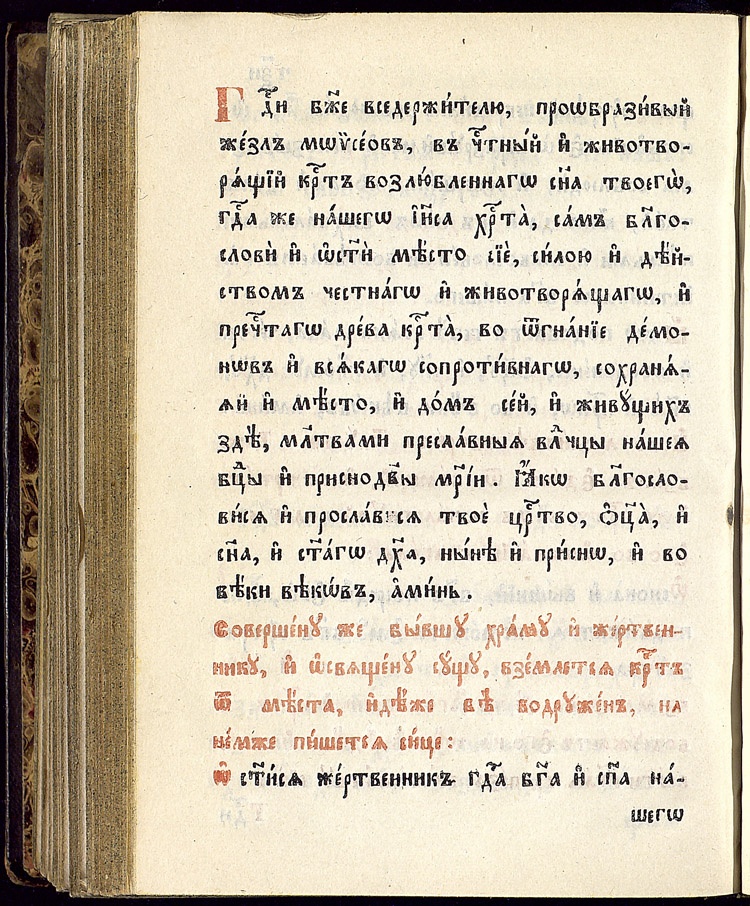 Гдⷭ҇и бж҃е вседержи́телю, проѡбрази́вый
же́злъ мѡѷсе́овъ, въ чⷭ҇тны́й и҆ животво-
рѧ́щїй крⷭ҇тъ возлю́бленнагѡ сн҃а твоегѡ̀,
гдⷭ҇а же на́шегѡ і҆и҃са хрⷭ҇та̀, са́мъ бл҃го-
словѝ и҆ ѡ҆ст҃ѝ мѣ́сто сїѐ, си́лою и҆ дѣ́й-
ствомъ честна́гѡ и҆ животворѧ́щагѡ, и҆
пречⷭ҇тагѡ дре́ва крⷭ҇та̀, во ѿгна́нїе де́мо-
нѡвъ и҆ всѧ́кагѡ сопроти́внагѡ, сохранѧ́-
ѧй и҆ мѣ́сто, и҆ до́мъ се́й, и҆ живꙋ́щихъ
здѣ̀, мл҃твами пресла́вныѧ влⷣчцы на́шеѧ
бцⷣы и҆ приснодв҃ы мр҃і́и. Ꙗ҆́кѡ бл҃госло-
ви́сѧ и҆ просла́висѧ твоѐ црⷭ҇тво, ѻ҆ц҃а̀, и҆
сн҃а, и҆ ст҃а́гѡ дх҃а, ны́нѣ и҆ при́снѡ, и҆ во
вѣ́ки вѣкѡ́въ, а҆ми́нь.
Соверше́нꙋ же бы́вшꙋ хра́мꙋ и҆ же́ртвен-
никꙋ, и҆ ѡ҆свѧще́нꙋ сꙋ́щꙋ, взе́млетсѧ крⷭ҇тъ
ѿ мѣ́ста, и҆дѣ́же бѣ̀ водрꙋже́нъ, на
не́мже пи́шетсѧ си́це:
Ѡ҆ст҃и́сѧ же́ртвенникъ гдⷭ҇а бг҃а и҆ сп҃са на́-
шегѡ